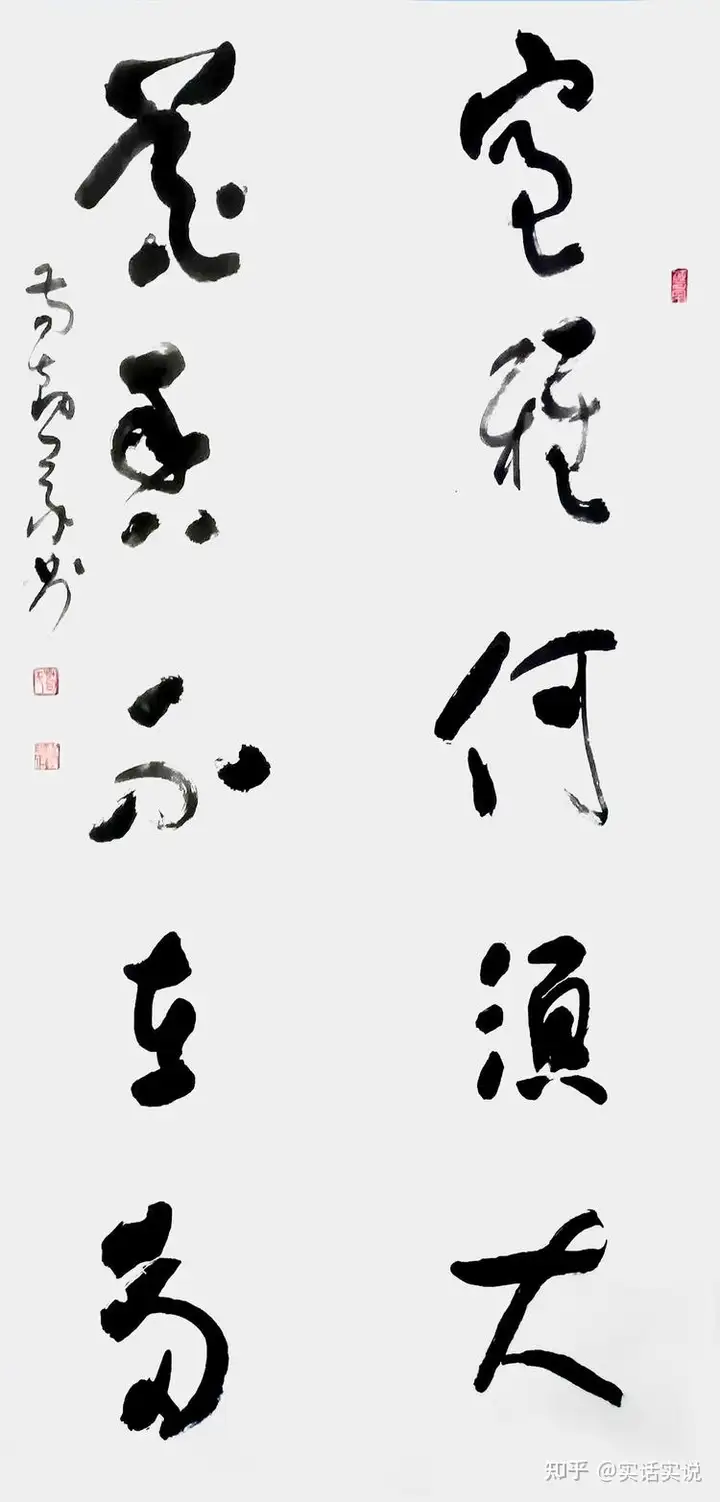 室雅何須大
花香不在多
知乎 @实话实说